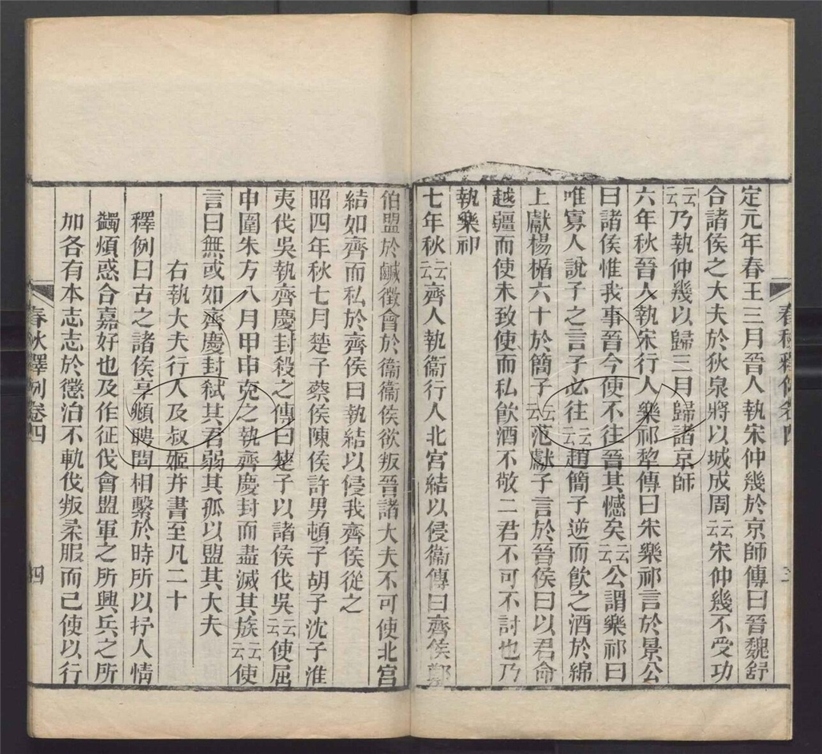 定元年春王三月晉人執宋仲幾於京師傳曰晉魏舒
合諸侯之大夫於狄泉將以城成周云云宋仲幾不受功
云云乃執仲幾以歸三月歸諸京師
六年秋晉人執宋行人樂祁犂傳曰宋樂祁言於景公
曰諸侯惟我事晉今使不往晉其憾矣云云公謂樂祁曰
唯寡人說子之言子必往云云趙簡子逆而飲之酒於綿
上獻楊楯六十於簡子云云范獻子言於晉侯曰以君命
越疆而使未致使而私飲酒不敬二君不可不討也乃
執樂祁
七年秋云云齊人執衞行人北宮結以侵衞傳曰齊侯鄭
伯盟於鹹徵會於衞衞侯欲叛晉諸大夫不可使北宮
結如齊而私於齊侯曰執結以侵我齊侯從之
昭四年秋七月楚子蔡侯陳侯許男頓子胡子沈子淮
夷伐吳執齊慶封殺之傳曰楚子以諸侯伐吳云云使屈
申圍朱方八月甲申克之執齊慶封而盡滅其族云云使
言曰無或如齊慶封弒其君弱其孤以盟其大夫
右執大夫行人及叔姬并書至凡二十
釋例曰古之諸侯享頫聘問相繫於時所以抒人情
蠲煩惑合嘉好也及作征伐會盟軍之所興兵之所
加各有本志志於懲治不軌伐叛柔服而已使以行
春秋釋例卷四
四